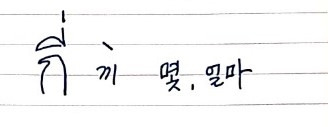 กี่ 끼̀ 몇, 얼마